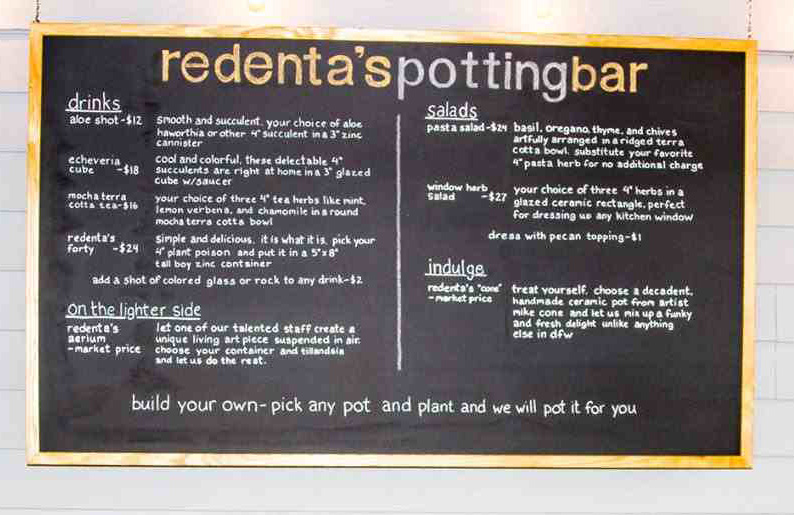 redenta's potting bar
drinks
aloe shot-$12 smooth and succulent. your choice of aloe
haworthia or other 4" succulent in a 3" zinc
cannister
echeveria cool and colorful, these delectable 4"
cube -$18 succulents are right at home in a 3" glazed
cube w/saucer
mocha terra your choice of three 4" tea herbs like mint,
cotta tea-$16 lemon verbena, and chamomile in a round
mocha terra cotta bowl
redenta's simple and delicious. it is what it is. pick your
forty -$24 4" plant poison and put it in a 5"x8"
tall boy zinc container
add a shot of colored glass or rock to any drink-$2
on the lighter side
redenta's let one of our talented staff create a
aerium unique living art piece suspended in air.
-market price choose your container and tillandsia
and let us do the rest.
salads
pasta salad-$24 basil, oregano, thyme, and chives
artfully arranged in a ridged terra
cotta bowl. substitute your favorite
4" pasta herb for no additional charge
window herb your choice of three 4" herbs in a
salad -$27 glazed ceramic rectangle, perfect
for dressing up any kitchen window
dress with pecan topping-$1
indulge
redenta's "cone" treat yourself. choose a decadent,
-market price handmade ceramic pot from artist
mike cone and let us mix up a funky
and fresh delight unlike anything
else in dfw
build your own-pick any pot and plant and we will pot it for you